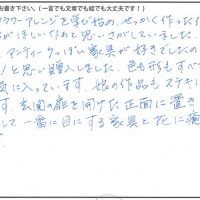 お書き下さい。（一言でも文章でも絵でも大丈夫です！）
フラワーアレンジを学び始め、せっかく作った作
がほしいなあと思いさがしていました。
アンティークっぽい家具が好きでしたの
！と思い購入しました。色も形もすべ
気に入っています。娘の作品もステキに
す。玄関の扉を開けた正面に置き
して一番に目にする家具と花に癒